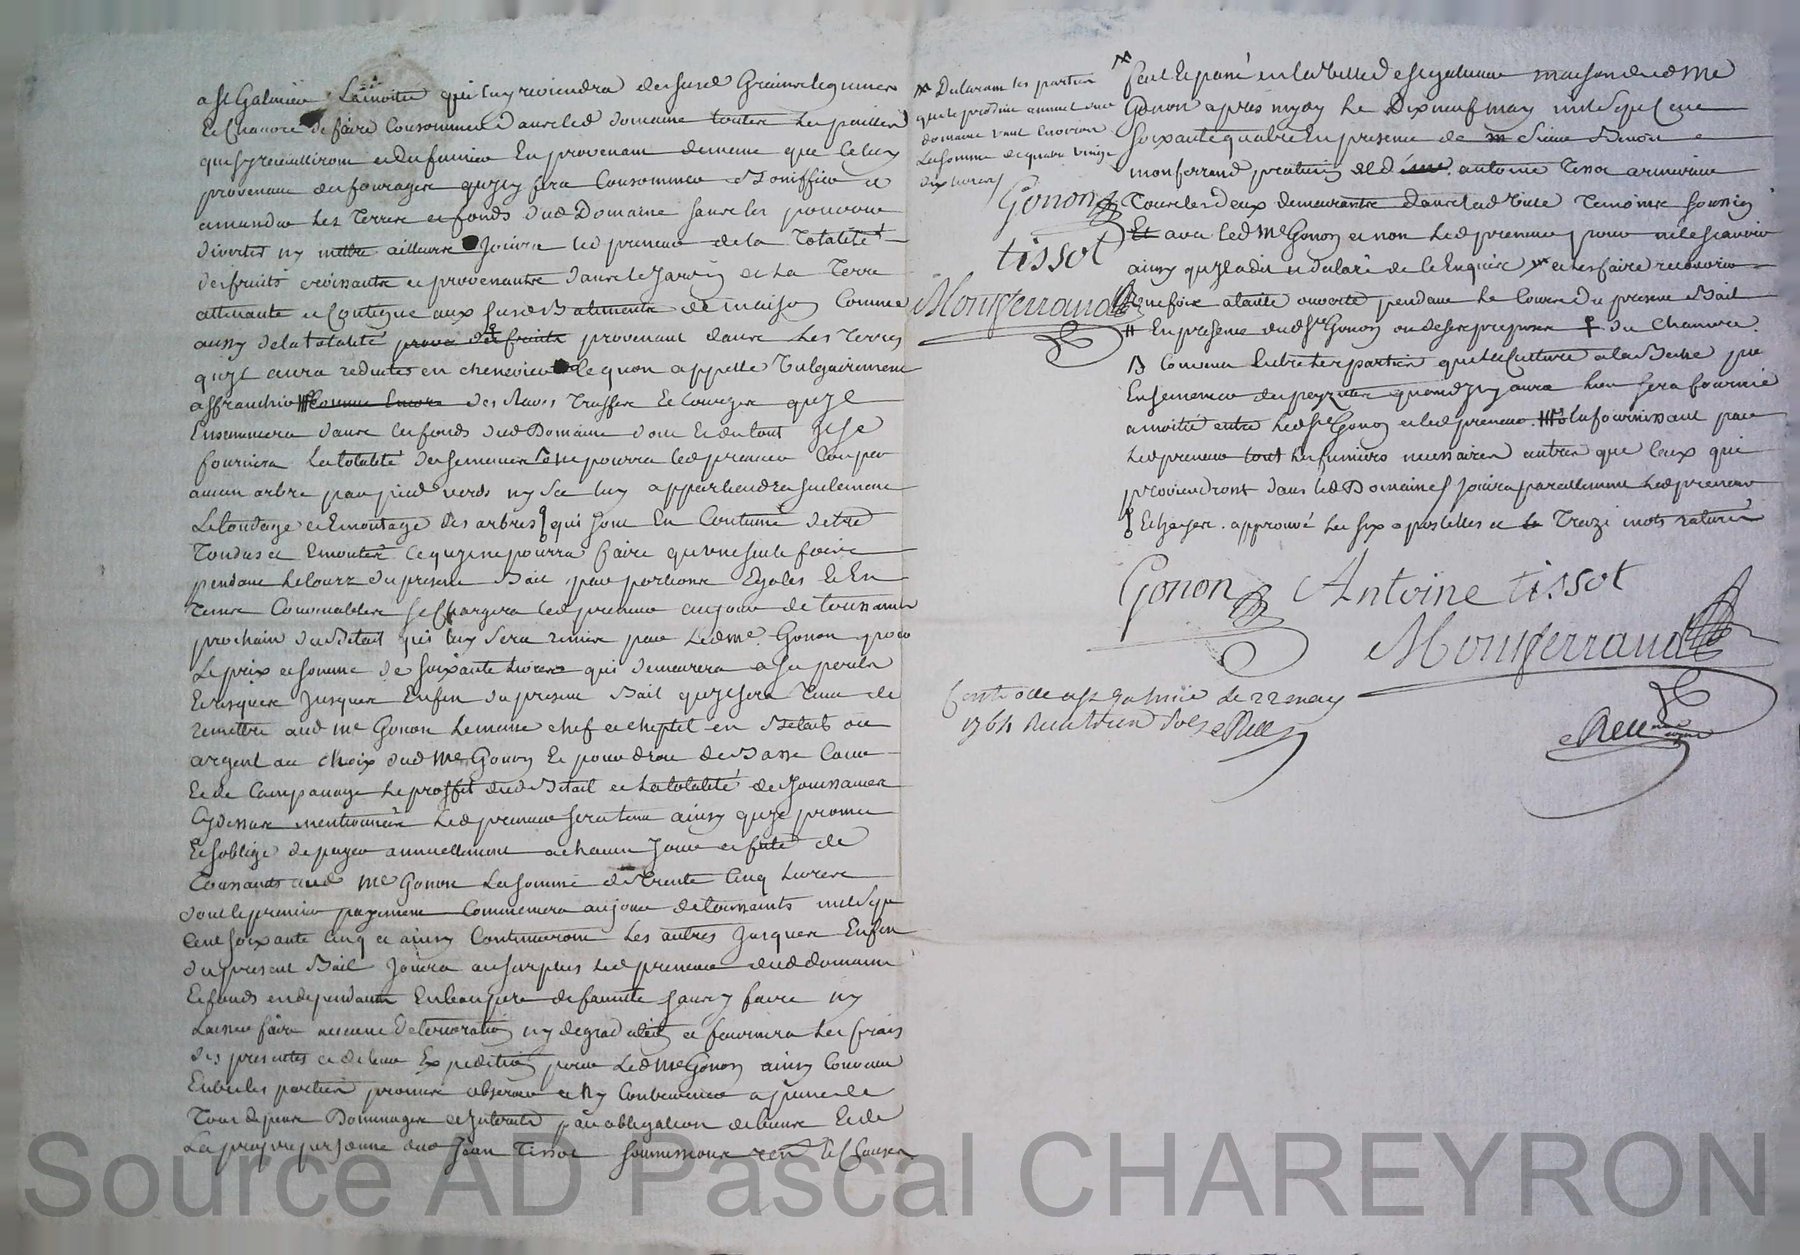 a st Galmier La moitié qui luy reviendra desusd Grains legumes
Et Chanvre de faire Consommer dans led domaine toutes Les pailles
quy recuilliront et du fumier En provenant de meme que Celuy
provenant des fourages quyly fera Consommer Boniffier et
amander Les Terres et fonds dud Domaine sans les pouvoir
divertir ny mettre ailleurs Jouira led preneur de la Totalité
des fruits croissants et provenants dans le Jardin et La Terre
attenante et Contigue aux susd Batiments de maison Comme
aussy de la totalité provenant dans Les Terres
quyl aura reduites en chenevier ce quon appelle Vulgairement
affranchir Comme Encore des Raves Truffes Et Courges quyl
Ensemencera dans les fonds dud Domaine dont Et du tout Il se
fournira La totalité des semences ne pourra led preneur Couper
aucun arbre par pied verds ny sec luy appartiendra seulement
La tondage et Emontage des arbres qui sont En Coutume detre
Tondus et Emontés ce quyl ne pourra faire qu'une seule fois
pendant Le Cours du present Bail par portions Egales Et En
Tems Convenables se Chargera led preneur au jour de toussaint
prochain du Betail qui luy sera remis par Led me Gonon pour
Le prix et somme de soixante Livres qui demeurera a ses perils
Et risques Jusques En fin du present Bail quyl sera Tenu de
remettre aud me Gonon Le meme chef et cheptel en Betail ou
argent au choix dud me Gonon Et pour droit de Basse Cour
Et de Campanage Le proffit dud Betail et La totalité des Jouissances
Cy dessus mentionnées Led preneur sera tenu ainsy quyl promet
Et soblige de payer annuellement a chacun Jour et fete de
Toussaints aud me Gonon La somme de Trente Cinq Livres
dont le premier payement Commencera au jour de toussaints mil sept
Cent soixante Cinq et ainsy Continueront Les autres Jusques En fin
du present Bail Jouira au surplus Led preneur dud domaine
Et fonds en dependants En bon pere de famille sans y faire ny
Laisser faire aucune deterioration ny degradation et fournira Les frais
des presentes et de leur Expedition pour Led me Gonon ainsy Convenu
Entre les parties promis observer et ny Contrevenir a peine de
Tous depens Dommages et Interets par obligation de biens Et de
La propre personne dud Jean Tissot soumissions ren et Clauses
Declarant les parties
que le produit annuel dud
domaine vaut Environ
La somme de quatre vingt
dix livres
Gonon
tissot
Monferrand
fait Et passé en la ville de st galmier maison dud me
Gonon apres mydy Le Dix neuf may mil sept cent
soixante quatre En presence de sieur Benoit
monferrand praticien et d antoine Tissot armurier
Tous les deux demeurants dans lad ville Temoins soussignés
avec led me Gonon et non Led preneur pour ne le scavoir
ainsy quyl a dit et declaré de ce Enquis et les faire reconnoitre
une fois a taute ouverte pendant Le Cours du present Bail
En presence dud sr Gonon ou de ses preposés du Chanvre.
Convenu Entre les parties que La Culture a la Beche pour
Ensemencer quand Il y aura Lieu sera fournie
a moitié entre Led sr Gonon et led preneur. La fournissant par
Led preneur tout Les fumiers necessaires autres que Ceux qui
proviendront dans led Domaine Jouira pareillement Led preneur
approuvé Les six apostilles et Treize mots raturés
Gonon Antoine tissot
Monferrand
Controllé a st galmie le 22 may
1764 Recu treize sols eRell
eRell